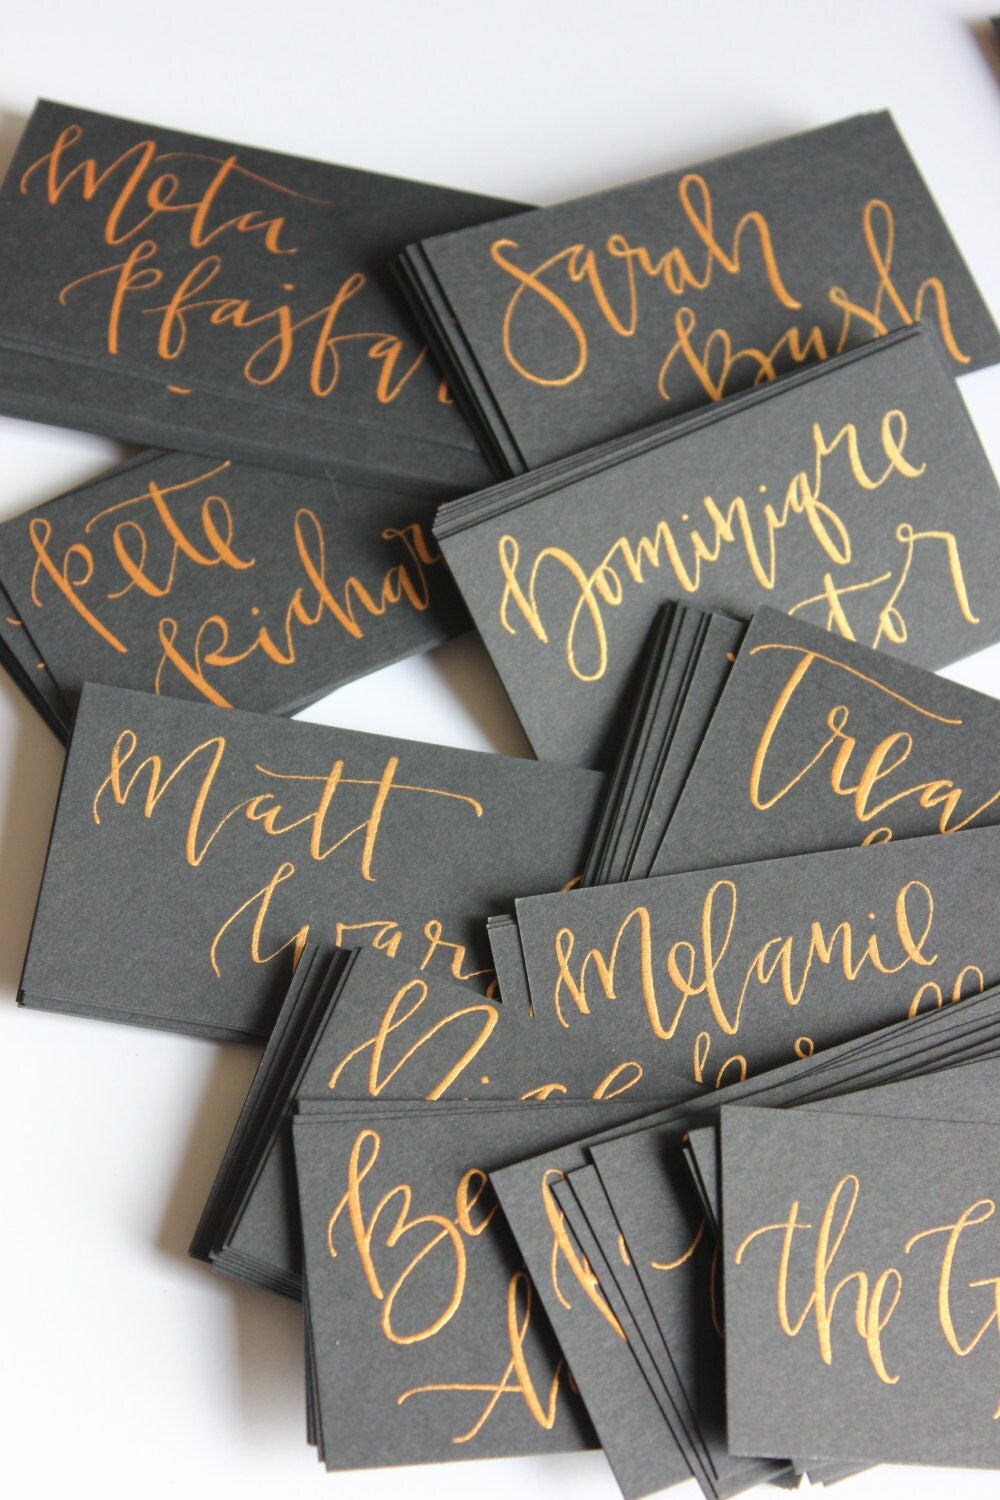 Meta
Pfajfa
Sarah
Bush
Pete
Richar
Dominique
tor
Matt
War
Trea
Melanie
Be
A
the G